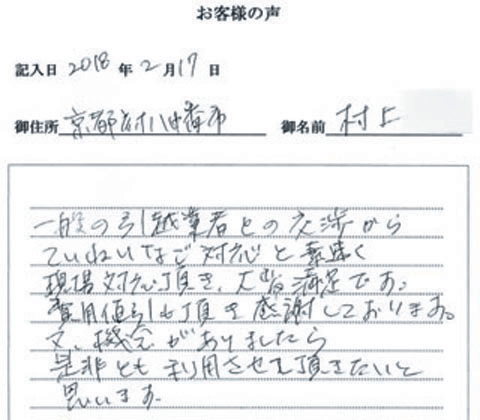 お客様の声
記入日 2018 年 2 月 17 日
御住所 京都府八幡市 御名前 村上
一般の引越業者との交渉から
ていねいなご対応と素速く
現場対応頂き、大変満足です。
費用値引も頂き感謝しております。
又、機会がありましたら
是非とも利用させて頂きたいと
思います。